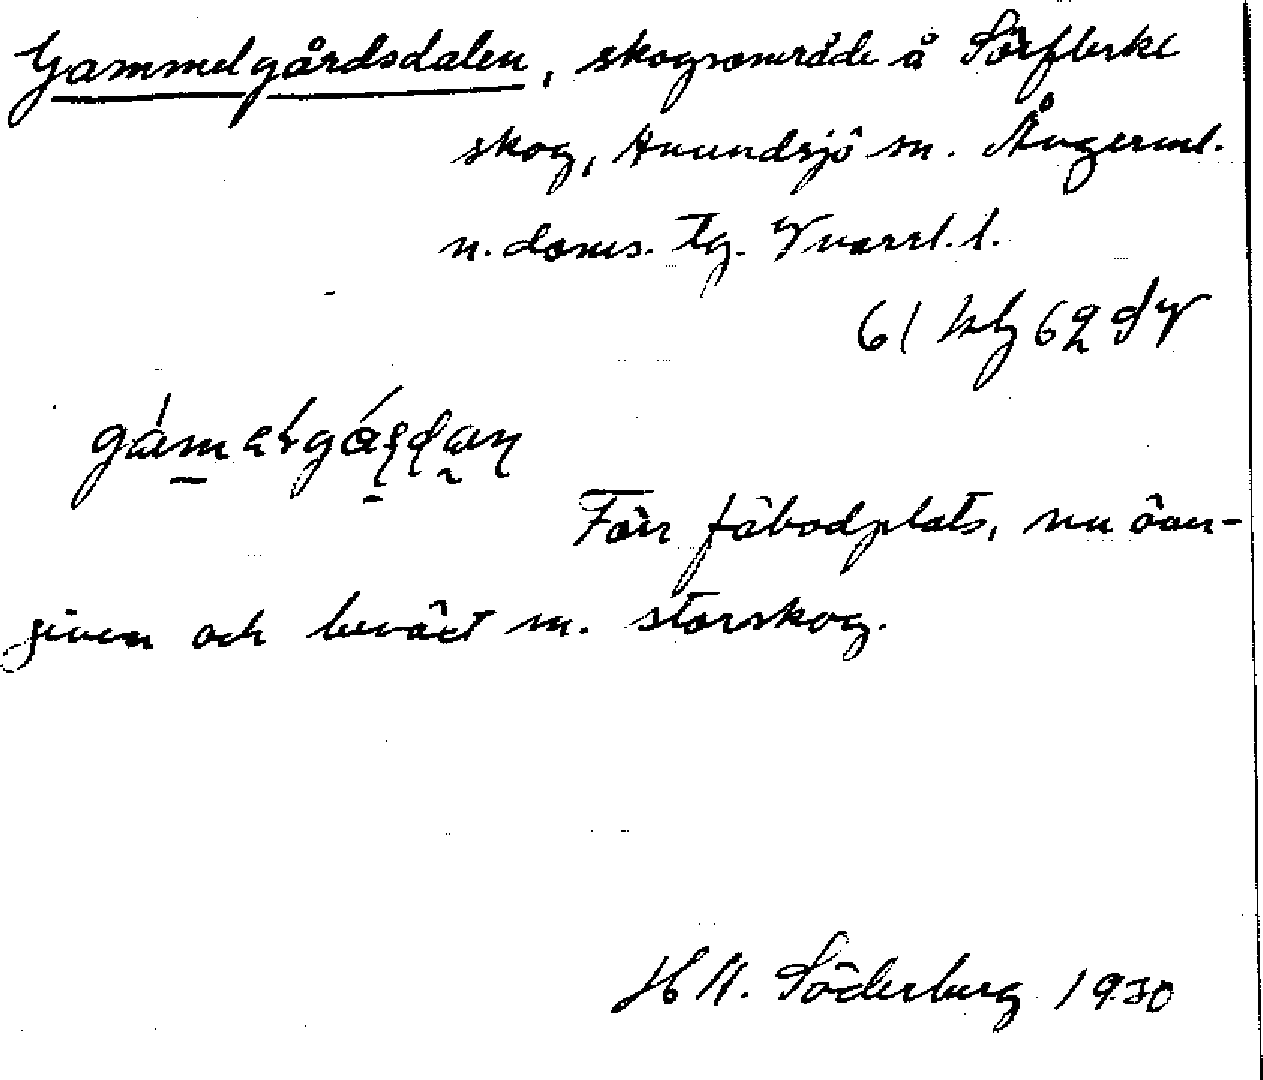 Gammelgårdsdalen, skogsområde å Sörflärke
skog, Anundsjö sn. Ångerml.
n. doms. tg. Vnorrl. l.
61 Mh 62 dV
Förr fäbodplats, nu över-
given och beväxt m. storskog.
H A. Söderberg 1930